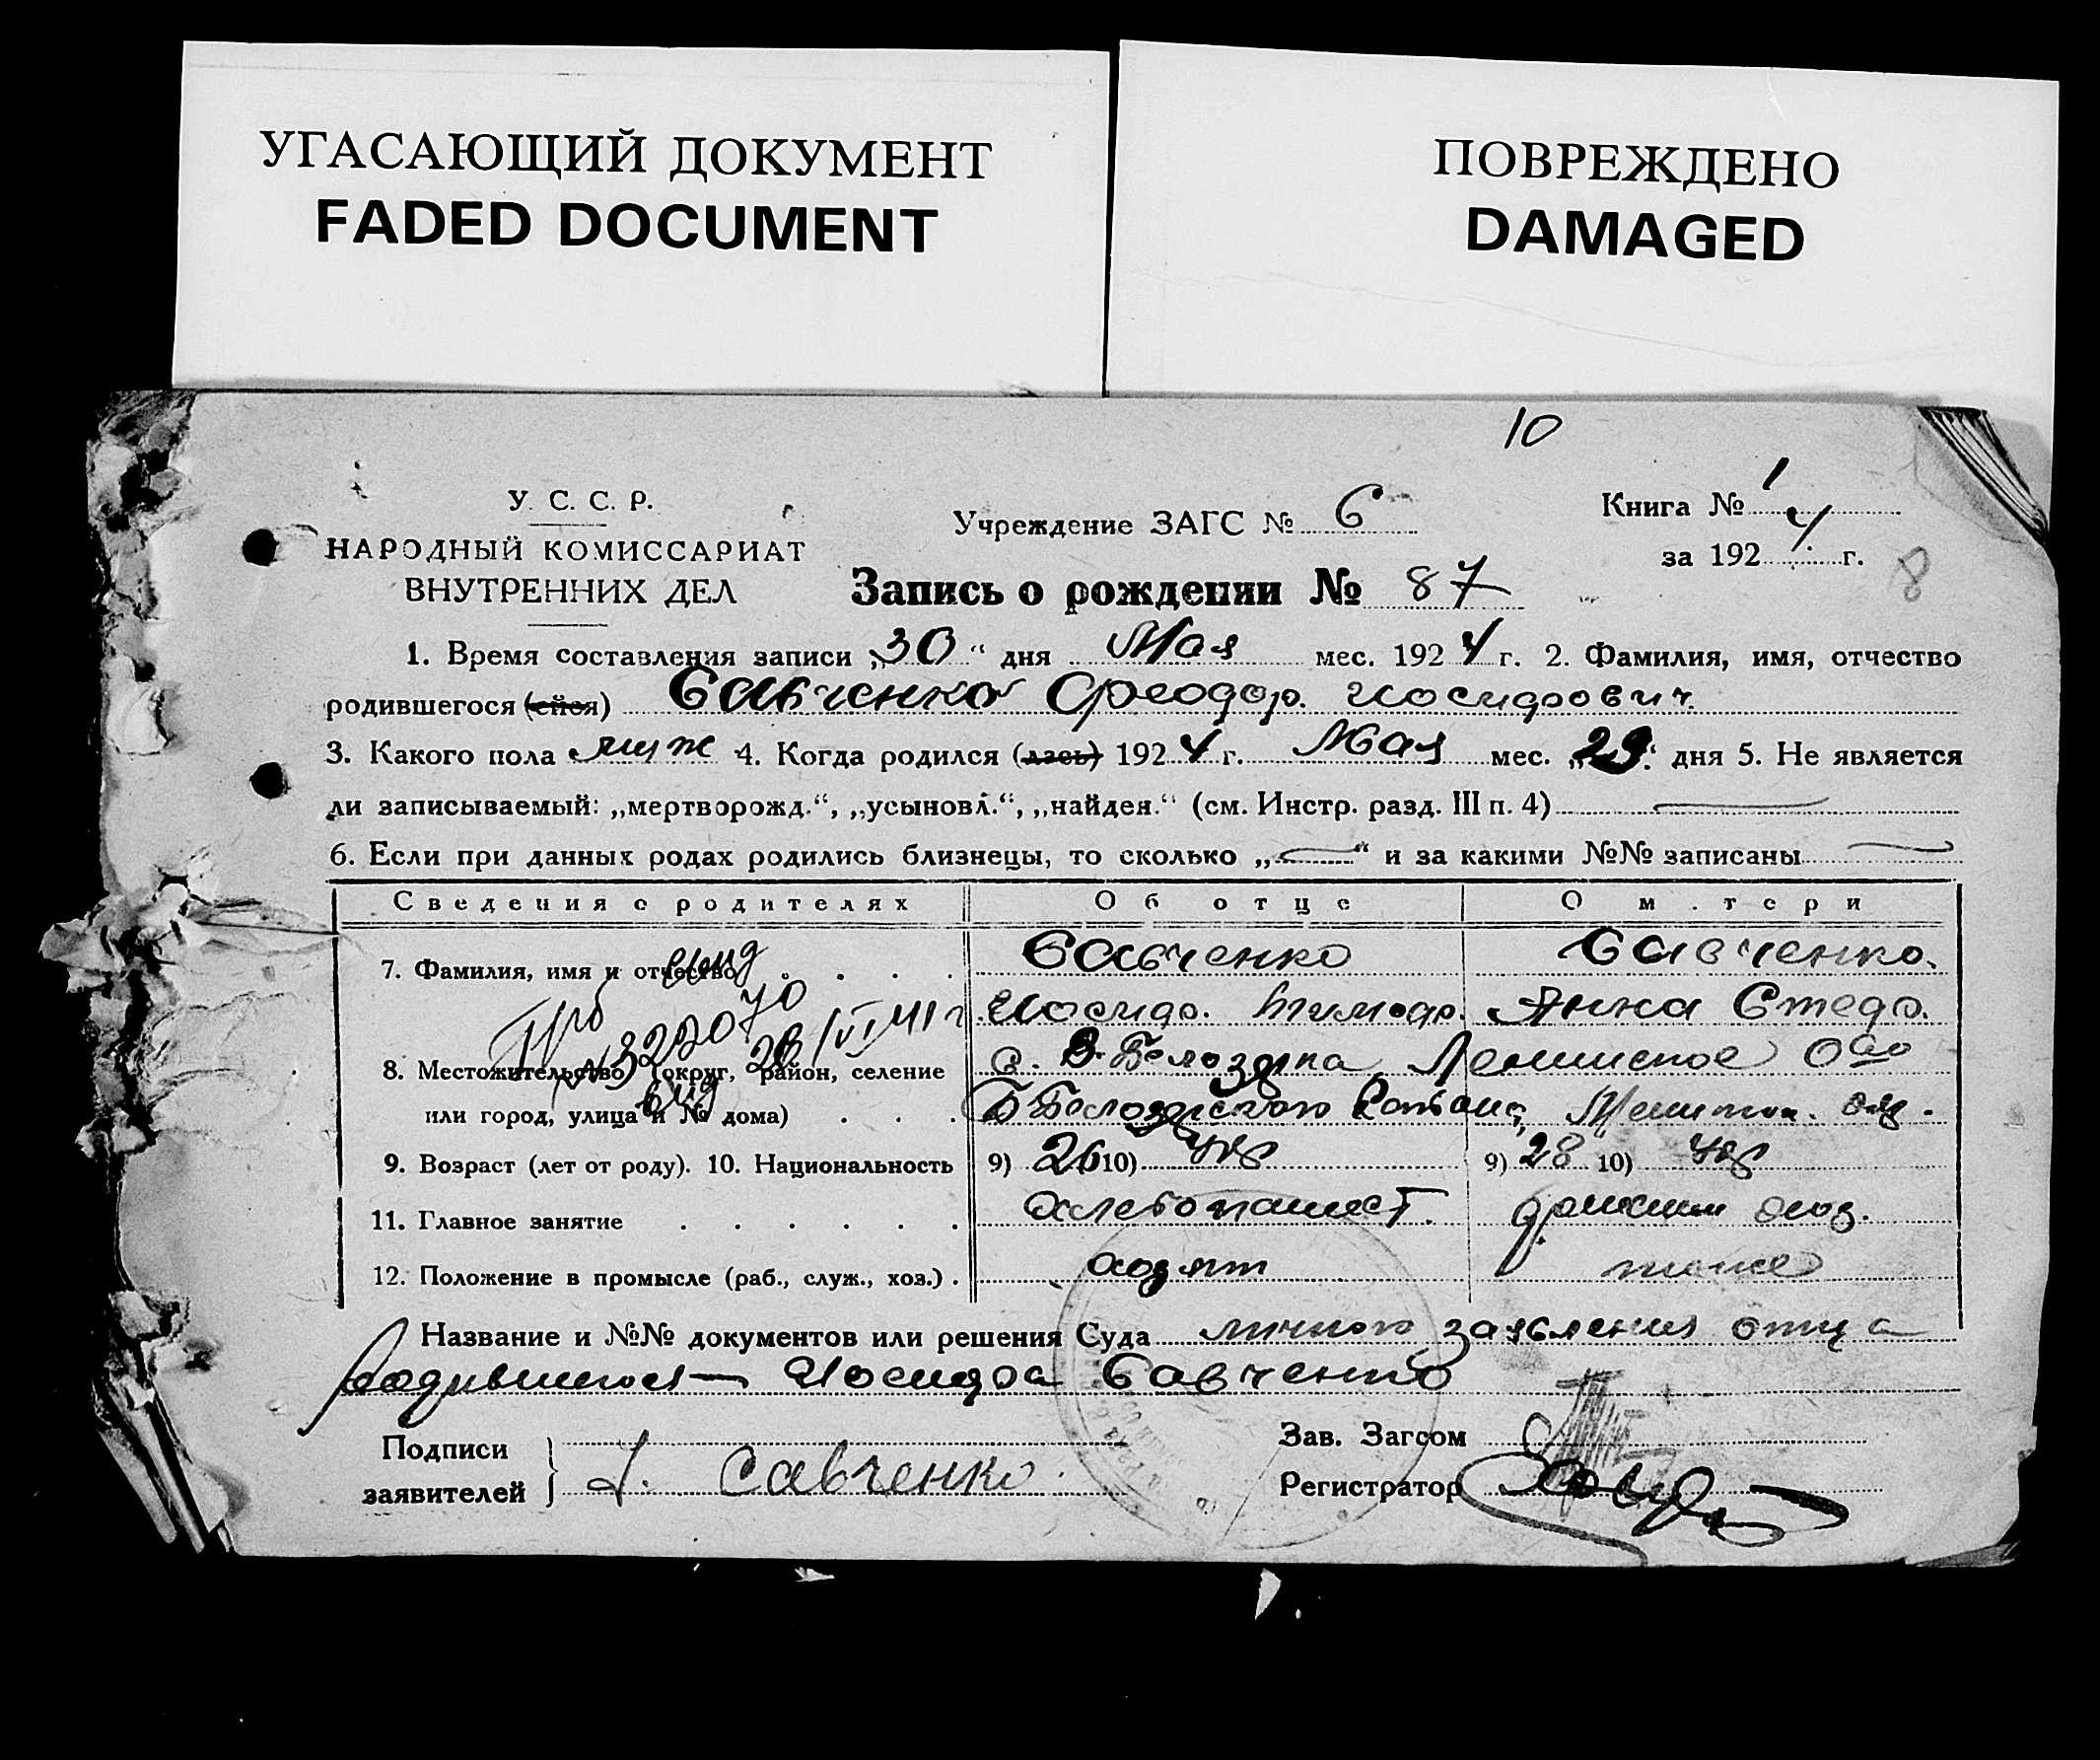 УГАСАЮЩИЙ ДОКУМЕНТ
FADED DOCUMENT
ПОВРЕЖДЕНО
DAMAGED
10
У. С. С. Р.
НАРОДНЫЙ КОМИССАРИАТ
ВНУТРЕННИХ ДЕЛ
Учреждение ЗАГС № 6
Книга № 1
за 1924 г.
8
Запись о рождении № 87
1. Время составления записи „30“ дня Мая мес. 1924 г. 2. Фамилия, имя, отчество
родившегося (ейся) Савченко Феодор. Иосифович.
3. Какого пола муж 4. Когда родился (лась) 1924 г. Мая мес. „29“ дня 5. Не является
ли записываемый: „мертворожд.“, „усыновл.“, „найден.“ (см. Инстр. разд. III п. 4)
6. Если при данных родах родились близнецы, то сколько „ “ и за какими №№ записаны
Сведения о родителях Об отце О матери
7. Фамилия, имя и отчество Савченко Савченко.
Иосиф. Тимоф. Анна Стеф.
8. Местожительство (округ, район, селение с. В-Белозерка, Ленинское
или город, улица и № дома) В-Белозерского Района, Мелитоп.
9. Возраст (лет от роду). 10. Национальность 9) 26 10) укр 9) 28 10) укр
11. Главное занятие хлебопашест. домашн
12. Положение в промысле (раб., служ., хоз.) хозяин тоже
Название и №№ документов или решения Суда личного заявления отца
родившегося — Иосифа Савченко
Подписи заявителей
Савченко
Зав. Загсом
Регистратор